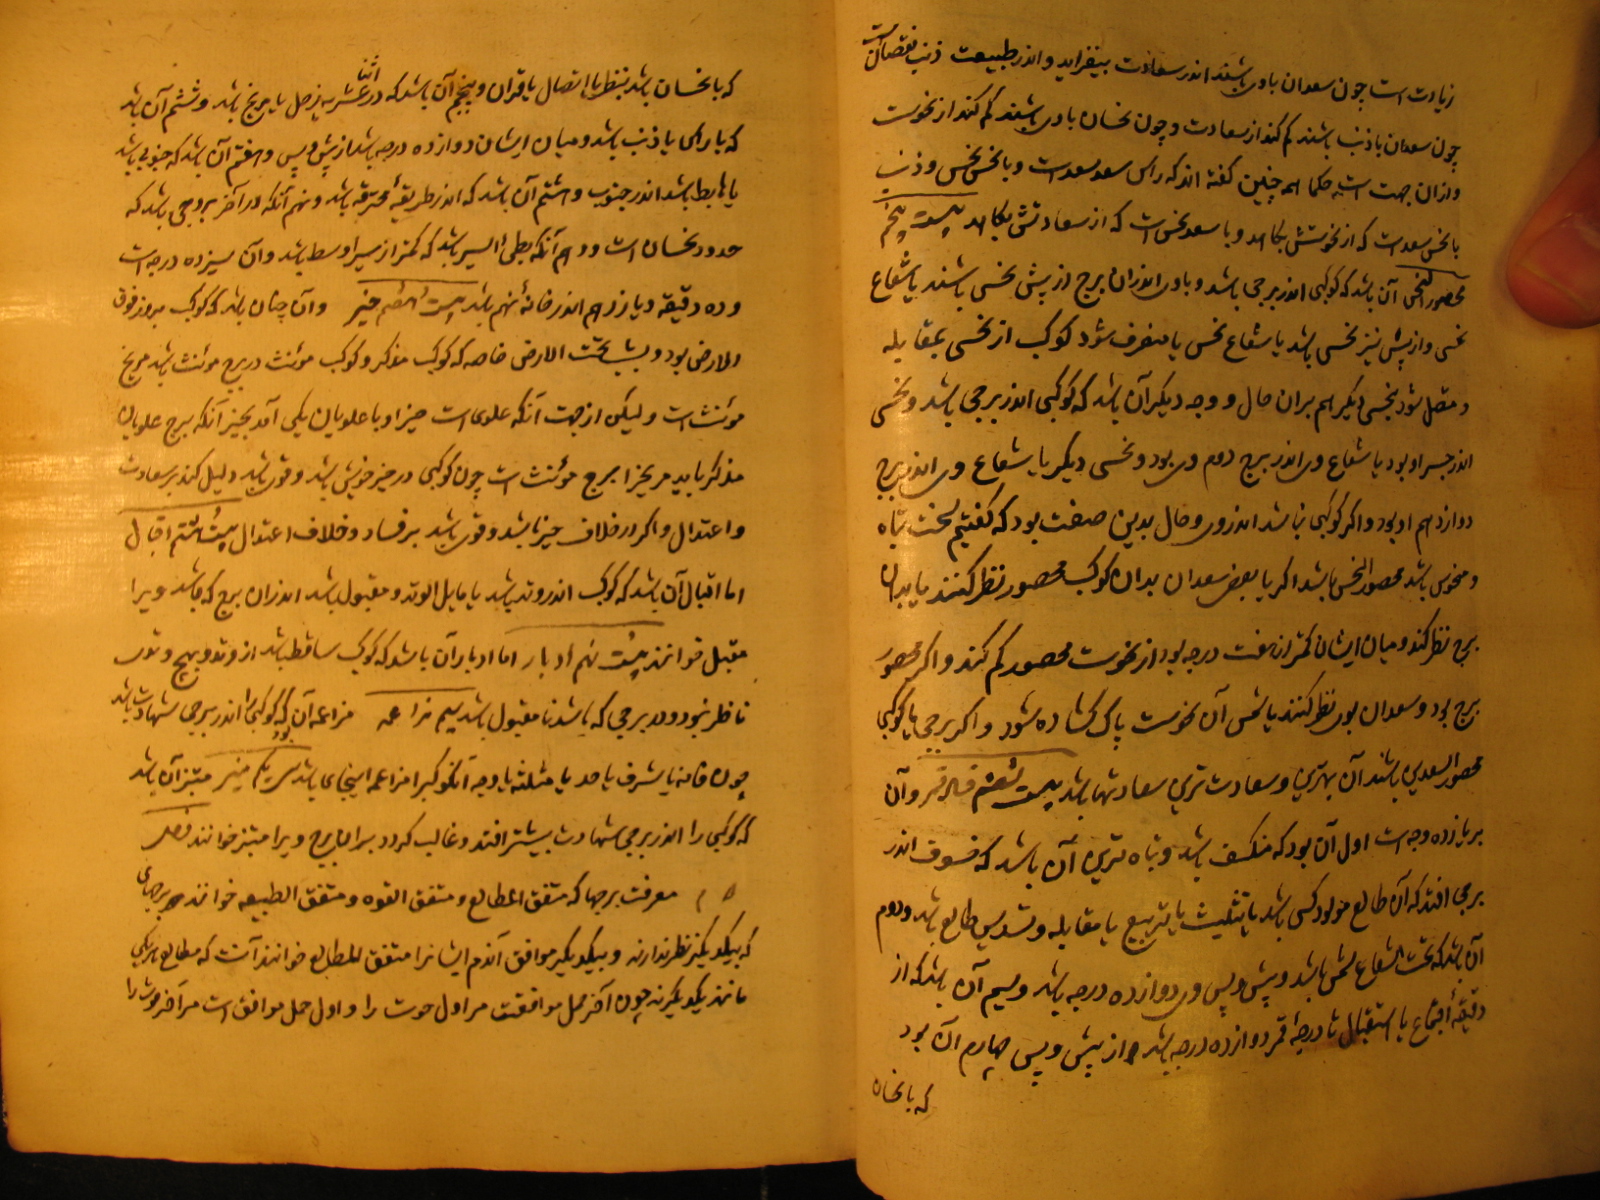 زیادت است چون سعدان با وی باشند اندر سعادت بیفزاید و اندر طبیعت ذنب نقصان است
چون سعدان با ذنب باشند کم کند از سعادت و چون نحسان با وی باشند کم کند از نحوست
و ازان جهت است که حکما اهم چنین گفته اند که راس سعد سعد است و با نحس نحس و ذنب
با نحس سعد است که از نحوستش بکاهد و با سعد نحس است که از سعادتش بکاهد بیست پنجم
محصور النحس آن باشد که کوکبی اندر برجی باشد و با وی اندران برج از پیش نحسی باشند یا شعاع
نحس و از پس نیز نحسی باشد یا شعاع نحس یا منصرف شود کوکب از نحسی بمقابله
و متصل شود بنحسی دیگر هم بران حال و وجه دیگر آن باشد که کوکبی اندر برجی باشد و نحسی
اندر جسر او بود یا شعاع وی اندر برج دوم وی بود و نحسی دیگر یا شعاع وی اندر برج
دوازدهم او بود و اگر کوکبی نباشد اندروی و حال بدین صفت بود که گفتیم سخت تباه
و منحوس باشد محصور النحس باشد اگر یا بعض سعدان بدان کوکب محصور نظر کنند یا بدان
برج نظر کند و میان ایشان کمتر از هفت درجه بود از نحوست محصور کم کند و اگر محصور
برج بود و سعدان بوی نظر کنند یا شمس آن نحوست پاک گشاده شود و اگر برجی یا کوکبی
محصور السعدین باشند آن بهترین و سعادت ترین سعادتها باشد بیست ششم فساد قمر و آن
بر یازده وجه است اول آن بود که منکسف باشد و تباه ترین آن باشد که خسوف اندر
برجی افتد که آن طالع مولود کسی باشد یا تثلیث یا تربیع یا مقابله و تسدیس طالع باشد و دوم
آن باشد که تحت الشعاع شمس باشد و پیش و پس وی دوازده درجه باشد و سیم آن باشد که از
دقیقهٔ اجتماع یا استقبال تا درجهٔ قمر دوازده درجه باشد از پیش و پس چهارم آن بود
که با نحسان
که با نحسان باشد بنظر یا اتصال یا قران و پنجم آن باشد که در اثنا عشریه زحل یا مریخ باشد و ششم آن باشد
که با راس یا ذنب باشد و میان ایشان دوازده درجه باشد از پیش و پس و هفتم آن باشد که جنوبی باشد
یا هابط باشد اندر جنوب و هشتم آن باشد که اندر طریقهٔ محترقه باشد و نهم آنکه در آخر بروجی باشد که
حدود نحسان است و دهم آنکه بطی السیر باشد که کمتر از سیر اوسط باشد و آن سیزده درجه است
و ده دقیقه و یازدهم اندر خانهٔ نهم باشد بیست هفتم حیز و آن چنان باشد که کوکب بروز فوق
الارض بود و بشب تحت الارض خاصه که کوکب مذکر و کوکب مونث در برج مونث باشد مریخ
مونث است و لیکن از جهت آنکه علوی است حیز او با علویان یکی آمد بجز آنکه برج علویان
مذکر باید مریخ را برج مونث است چون کوکبی در حیز خویش باشد و قوی باشد دلیل کند بر سعادت
و اعتدال و اگر در خلاف حیز باشد و قوی باشد بر فساد و خلاف اعتدال بیست هشتم اقبال
اما اقبال آن باشد که کوکب اندر وتد باشد یا مایل الوتد و مقبول باشد اندران برج که باشد ویرا
مقبل خوانند بیست نهم ادبار اما ادبار آن باشد که کوکب ساقط باشد از وتد و بهیچ وتد
ناظر نبود و در برجی که باشد نا مقبول باشد سیم مزاعمه مزاعمه آن بود که کوکبی را اندر برجی شهادت باشد
چون خانه یا شرف یا حد یا مثلثه یا وجه آنکو کبرا مزاعمه اینجای باشد سی یکم مبتز مبتز آن باشد
که کوکبی را اندر برجی شهادت بیشتر افتد و غالب گردد بران برج ویرا مبتز خوانند فصل
معرفت برجها که متفق المطالع و متفق القوه و متفق الطبیعه خوانند برجهای
که بیکدیگر نظر ندارند و بیکدیگر موافق آندم ایشانرا متفق المطالع خوانند آنست که مطالع هر یکی
مانند یکدیگرند چون آخر حمل موافقت مر اول حوت را و اول حمل موافق است مر آخر حوت را